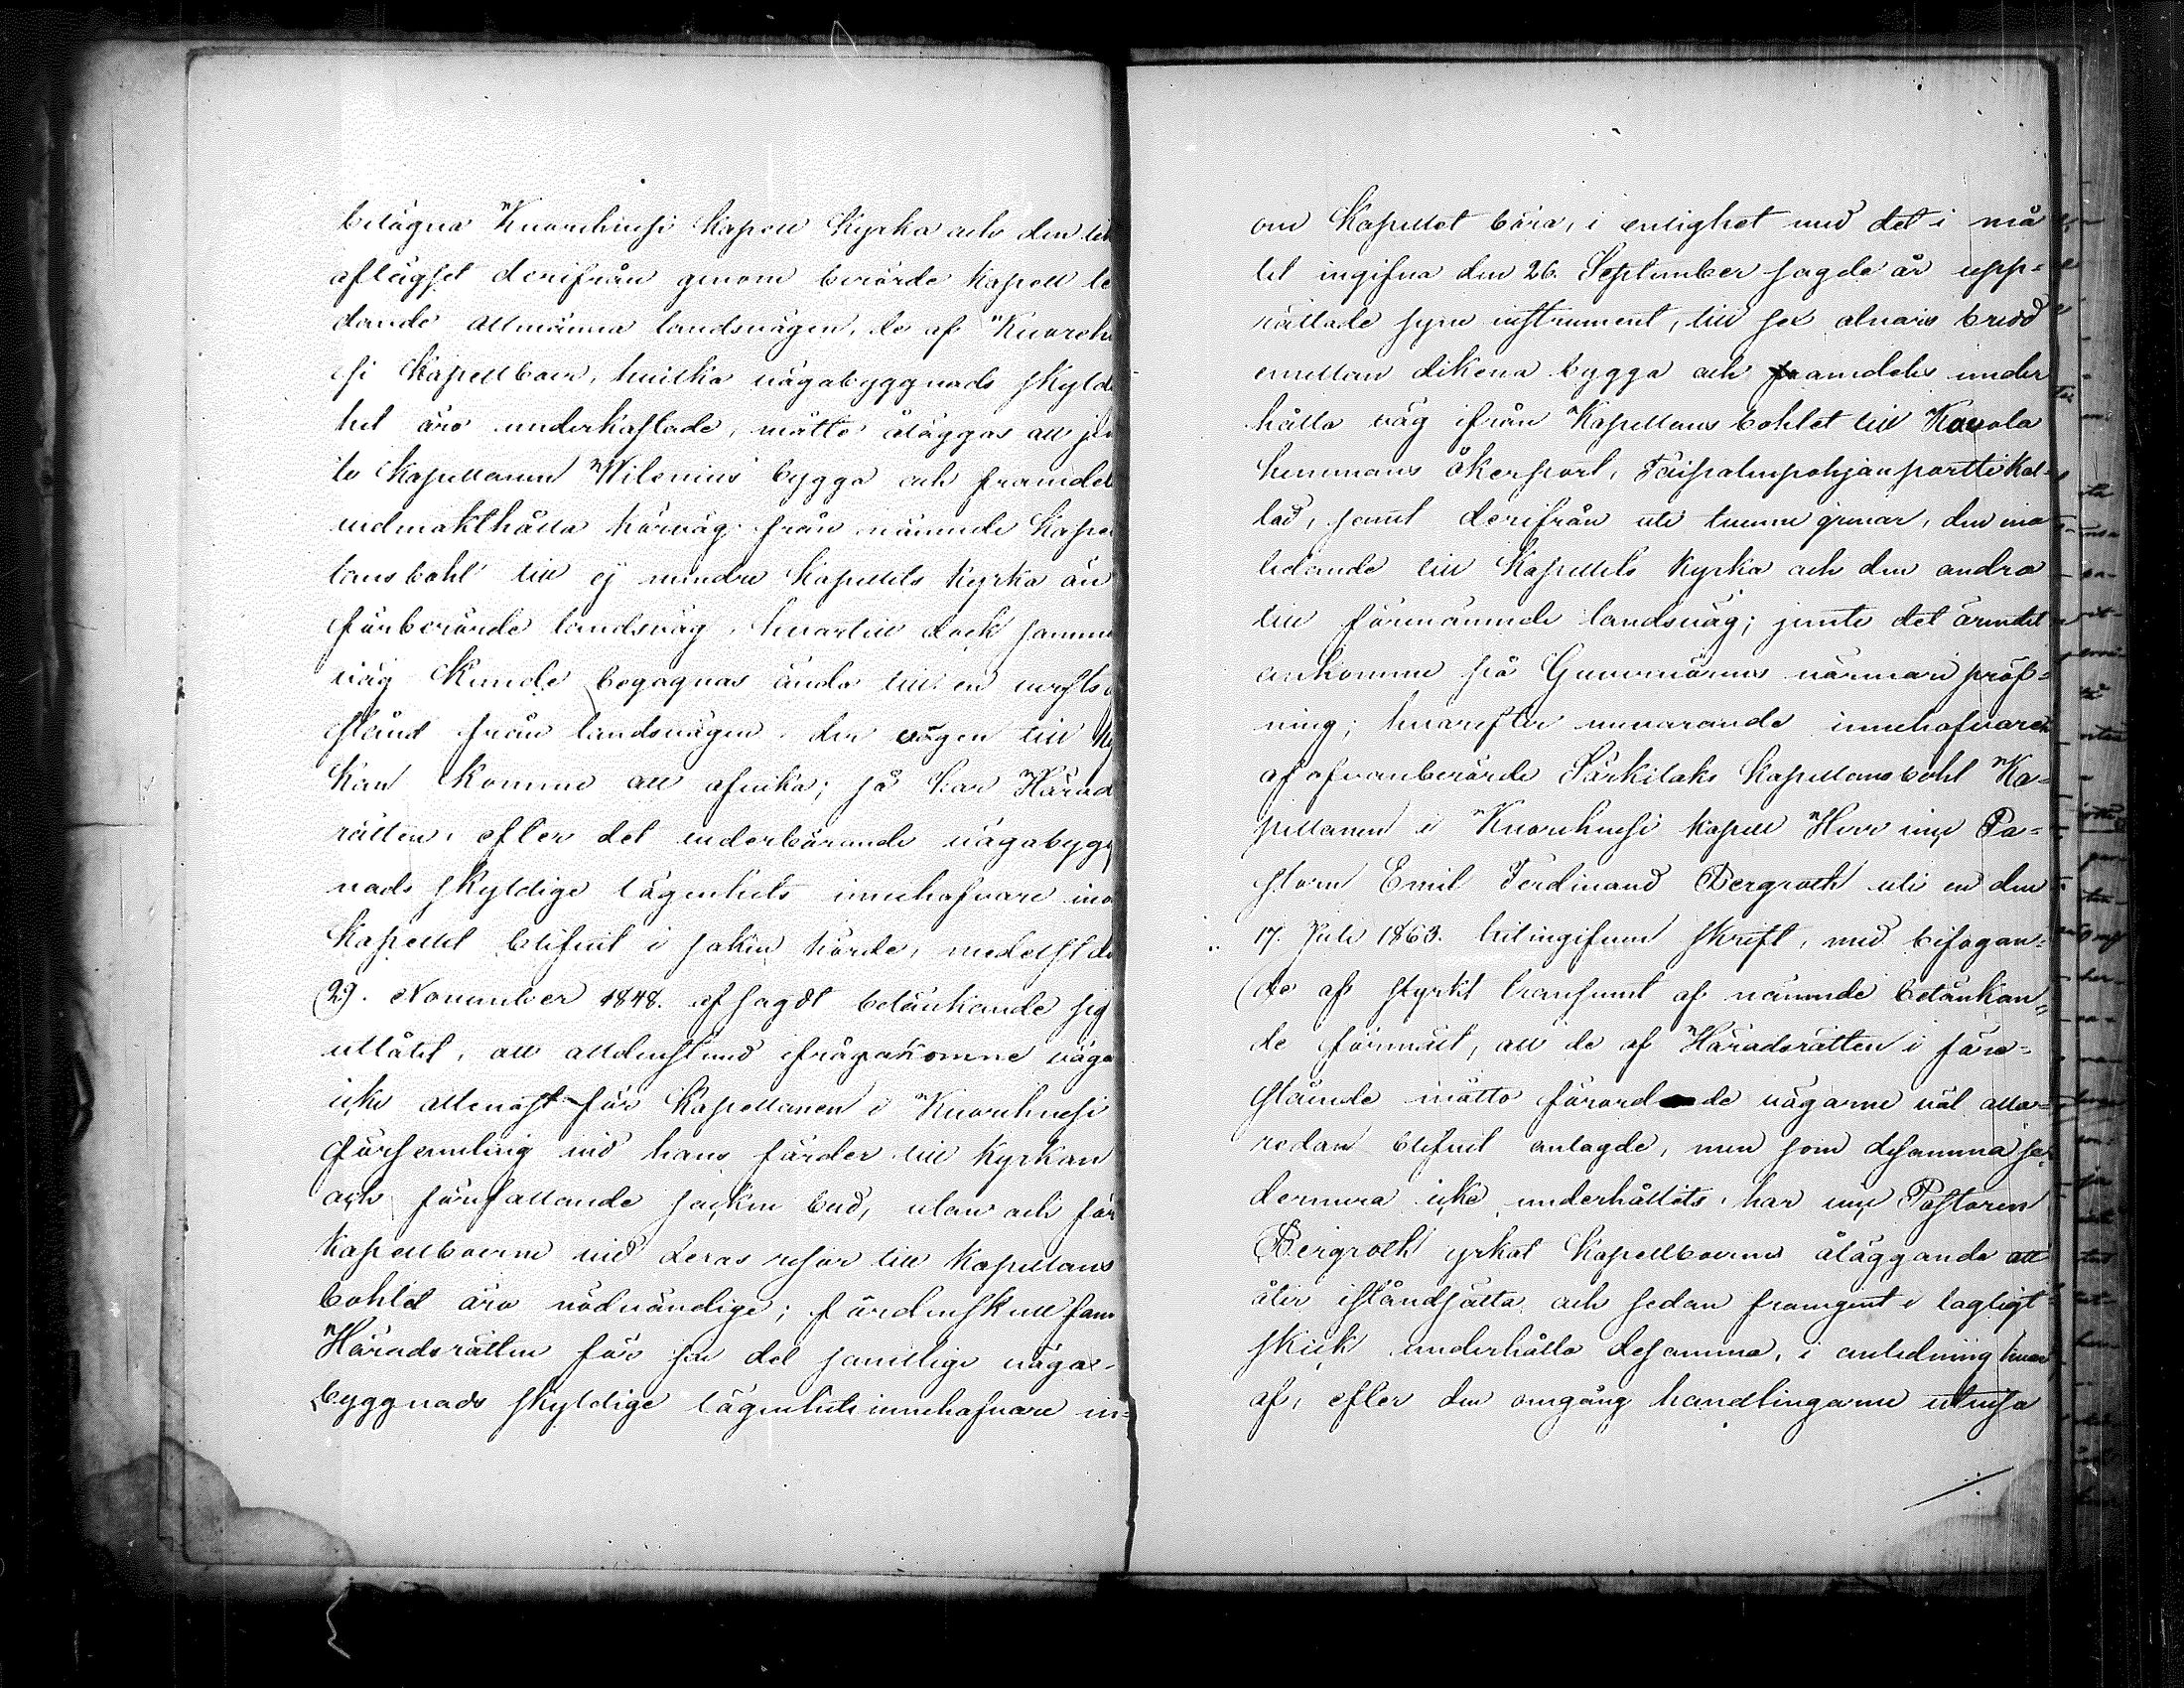 belägna Knorehnesi Kapell Kyrka och den
aflägset derifrån genom berörde Kapell le
dande allmänna landsvägen, de af Kuoreh
si Kapellboer, hvilka vägabyggnads skyld
het äro underkastade, måtte åläggas att jem
te Kapellanen Wilenius bygga och framdel
vidmakthålla körväg från nämnde Kape
lansbohl till ej mindre Kapellets Kyrka än
förberörde landsväg, hvartill dock samme
väg kunde begagnas ända till en versts
stånd från landsvägen der vägen till Ky
kan komme att afvika; så har Härad
rätten, efter det vederbörande vägabygg
nads skyldige lägenhets innehafvare ino
Kapellet blifvit i saken hörde, medelst de
29. November 1848. afsagdt betänkande sig
utlåtit, att alldenstund ifrågakomne väga
icke allenast för Kapellanen i Kuorehnesi
församling vid hans färder till Kyrkan
och förefallande socken bud, utan och för
Kapellboerne vid deras resor till Kapellans
bohlet äro nödvändige; fördenskull fann
Häradsrätten för sin del samtlige väga-
byggnads skyldige lägenhets innehafvare in-
om Kapellet böra, i enlighet med det i må
let ingifna den 26. September sagde år upp-
rättade syne instrument, till sex alnars bredd
emellan dikena bygga och framdeles under
hålla väg ifrån Kapellans bohlet till Kauola
hemmans åkerport, Taipalenpohjanportti kal-
lad, samt derifrån uti tvenne grenar, den ena
ledande till Kapellets Kyrka och den andra
till förenämnde landsväg; jemte det ärendet
ankomme på Guvernörens närmare pröf-
ning; hvarefter nuvarande innehafvaren
af ofvanberörde Särkilaks Kapellansbohl Ka-
pellanen i Kuorehnesi Kapell Herr vice Pa-
storn Emil Ferdinand Bergroth uti en den
17. Juli 1863. hitingifven skrift, med bifogan-
de af styrkt transumt af nämnde betänkan-
de förmält, att de af Häradsrätten i före-
stående måtto förordnade vägarne väl alla-
redan blifvit anlagde, men som desamma se-
dermera icke underhållits, har vice Pastoren
Bergroth yrkat Kapellboernes åläggande att
åter iståndsätta och sedan framgent i lagligt
skick underhålla desamma, i anledning hvar
af, efter den omgång handlingarne utvisa